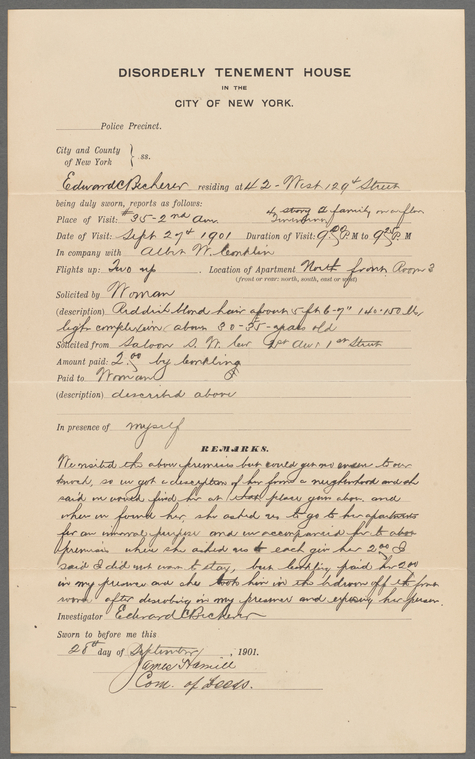 DISORDERLY TENEMENT HOUSE
IN THE
CITY OF NEW YORK.
Police Precinct.
City and County
of New York } ss.
Edward C Becherer residing at 42 - West 129th Street
being duly sworn, reports as follows:
4 story 2 family on a floor
Place of Visit: #35 - 2nd Ave. Tenement
Date of Visit: Sept 27th 1901 Duration of Visit: 9 P.M to 9 P. M
In company with Albert W. Conklin
Flights up: Two up. Location of Apartment North front Room 3
(front or rear: north, south, east or west)
Solicited by Woman
(description) Reddish blond hair about 5 ft 6-7" 140-150 lbs
light complexion about 30-35 years old
Solicited from Saloon S. W. Cor 1st Ave & 1st Street
Amount paid: 2.00 by Conkling
Paid to Woman
(description) described above
In presence of myself
REMARKS.
We visited the above premises but could get no answer to our
knock, so we got a description of her from a neighborhood and
said we would find her at place given above and
when we found her, she asked us to go to her apartments
for an immoral purpose and we accompanied her to above
premises where she asked us to each give her 2.00 I
said I did not want to stay, but Conkling paid her 2.00
in my presence and she took him in the bedroom off the front
room after disrobing in my presence and exposing her person.
Investigator Edward C Becherer
Sworn to before me this
28th day of September, 1901.
James Hamill
Com. of Deeds.